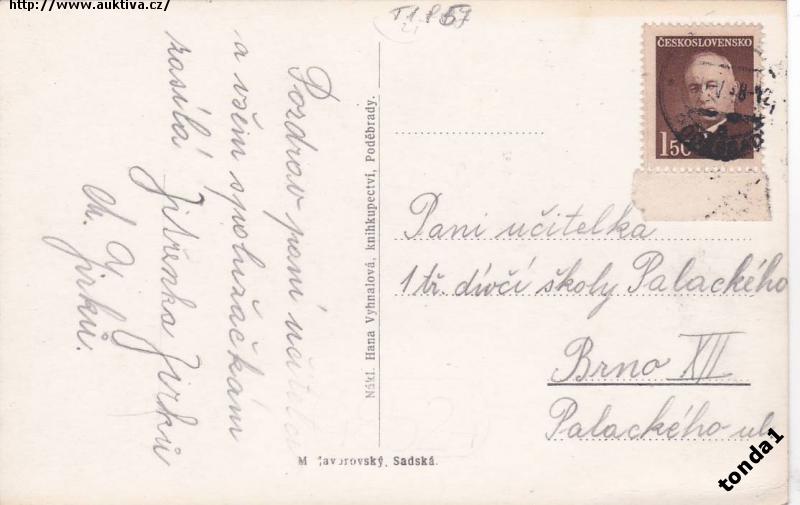 http://www.auktiva.cz/
T1 P 57
ČESKOSLOVENSKO
1 50
Pozdrav paní učitelce
a všem spolužačkám
zasílá Jitřenka Jirků
Jirků.
Nákl. Hana Vyhnalová, knihkupectví, Poděbrady.
M Javorovský, Sadská.
Paní učitelka
1 tř. dívčí školy Palackého
Brno XII
Palackého ul
tonda1